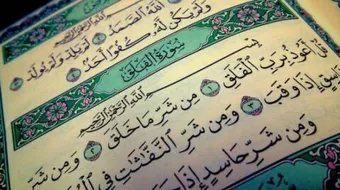 ٱللَّهُ ٱلصَّمَدُ ۝ لَمْ يَلِدْ وَلَمْ يُولَدْ ۝
وَلَمْ يَكُن لَّهُۥ كُفُوًا أَحَدٌۢ ۝
سُورَةُ الفَلَقِ
بِسْمِ ٱللَّهِ ٱلرَّحْمَٰنِ ٱلرَّحِيمِ
قُلْ أَعُوذُ بِرَبِّ ٱلْفَلَقِ ۝ مِن شَرِّ مَا خَلَقَ ۝ وَمِن شَرِّ
غَاسِقٍ إِذَا وَقَبَ ۝ وَمِن شَرِّ ٱلنَّفَّٰثَٰتِ فِى
وَمِن شَرِّ حَاسِدٍ إِذَا